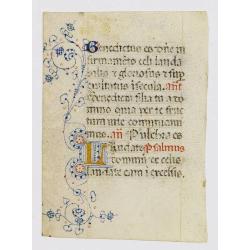 Benedictus es dñe in
firmamento celi laudabilis & gloriosus & sup
in secula. añ
benedicti filia tu a domino
quia per te fructum vite communicauimus. añ Pulchra es
Psalmus
Laudate
dominum de celis
laudate eum i excelsis.